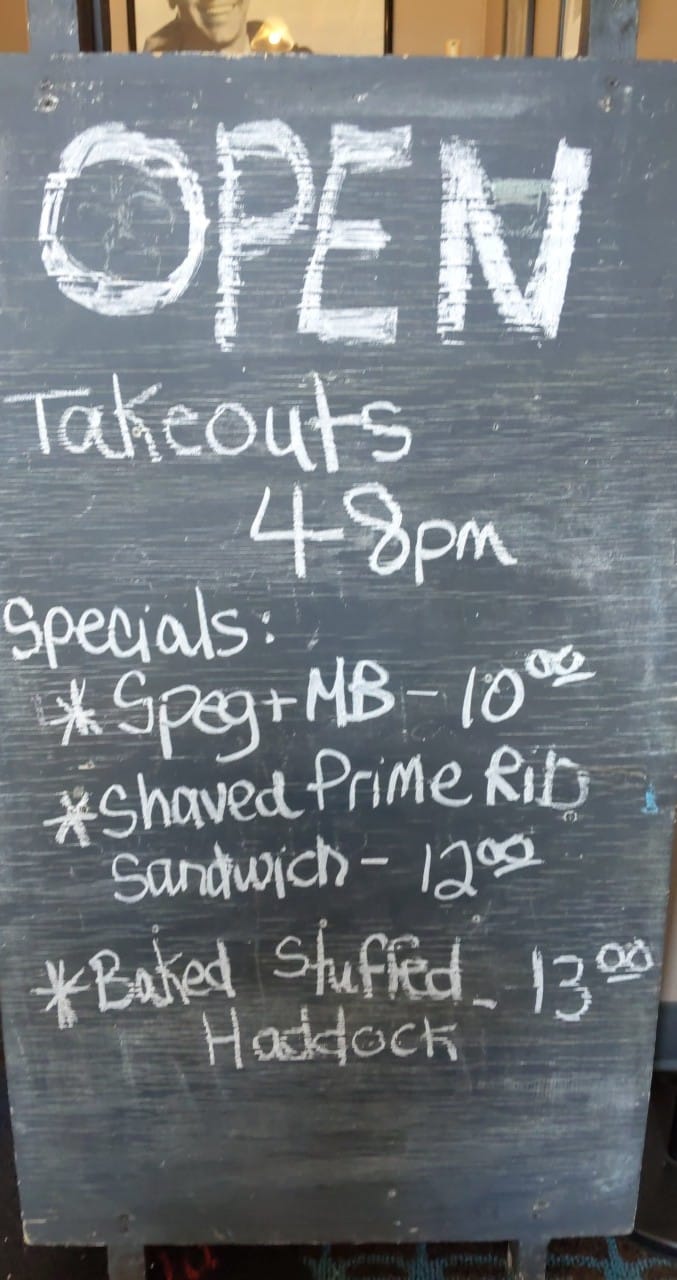 OPEN
Takeouts
4-8pm
Specials:
* Speg + MB - 10.00
* Shaved Prime Rib
Sandwich - 12.00
* Baked Stuffed - 13.00
Haddock